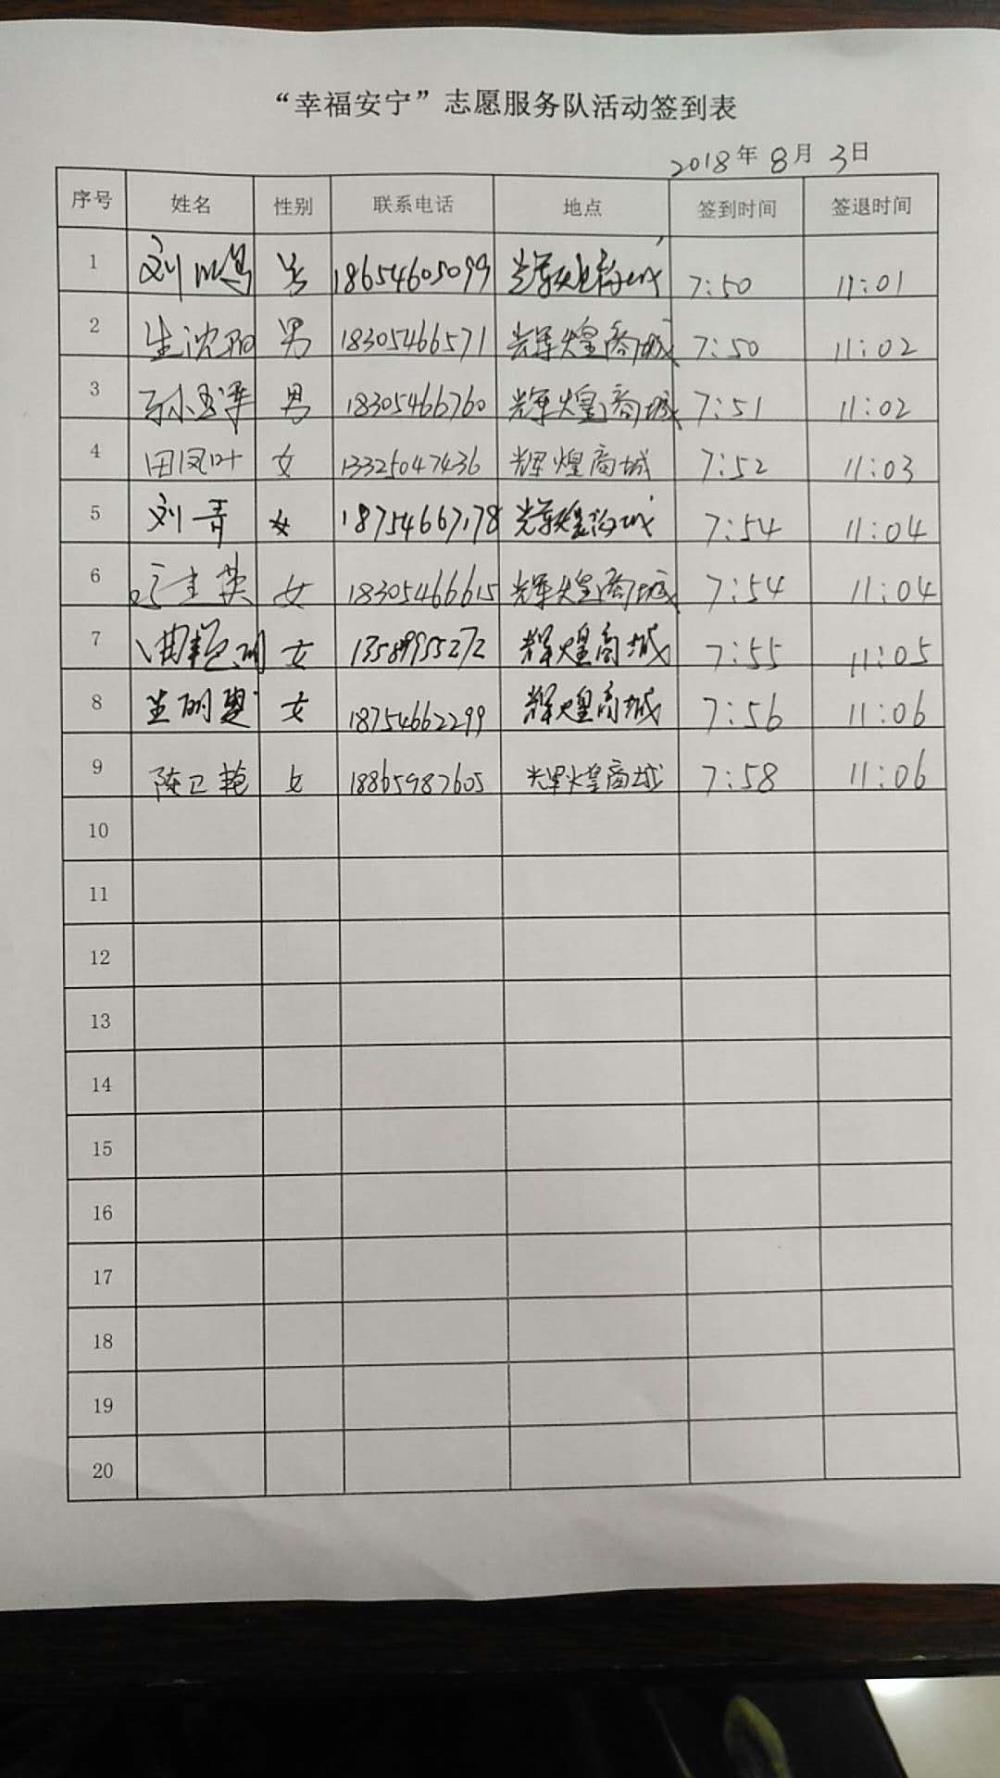 “幸福安宁”志愿服务队活动签到表
2018年 8月 3日
序号 姓名 性别 联系电话 地点 签到时间 签退时间
1 刘 男 18654605099 7:50 11:01
2 生沈阳 男 18305466571 辉煌商城 7:50 11:02
3 孙 男 18305466760 辉煌商城 7:51 11:02
4 田凤叶 女 13325047436 辉煌商城 7:52 11:03
5 刘青 女 18754667178 辉煌商城 7:54 11:04
6 英 女 18305466615 辉煌商城 7:54 11:04
7 女 13589955272 辉煌商城 7:55 11:05
8 女 18754662299 辉煌商城 7:56 11:06
9 陈卫艳 女 18865987605 辉煌商城 7:58 11:06
10
11
12
13
14
15
16
17
18
19
20